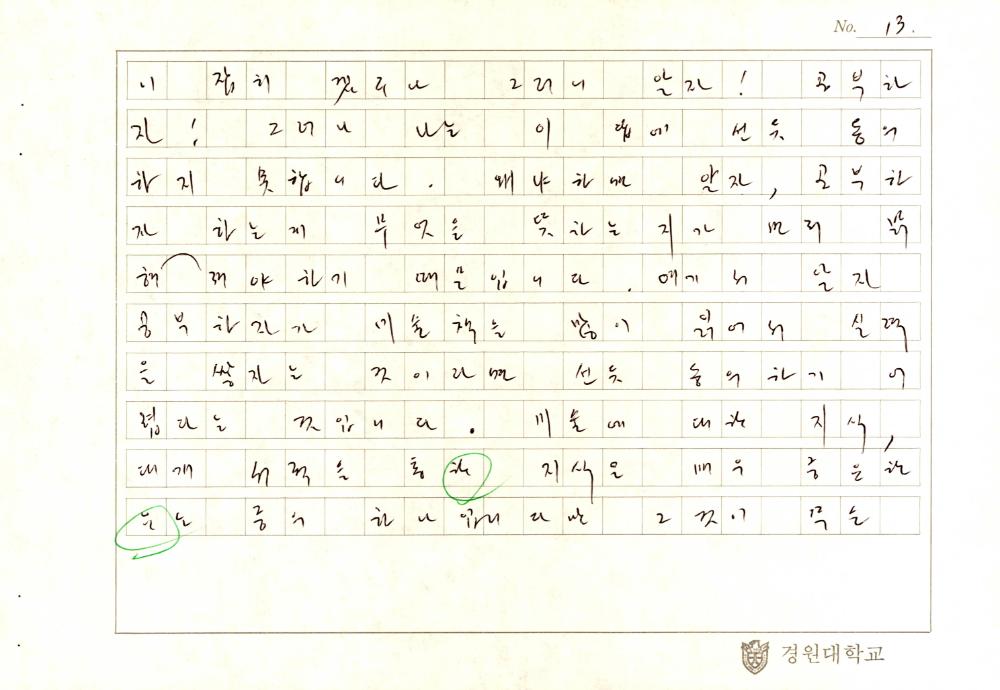 No. 13.
이 잡히 겠루나 그러니 알자! 공부하
자! 그러나 나는 이 답에 선뜻 동의
하지 못합니다. 왜냐하면 알자, 공부하
자 하는게 무엇을 뜻하는 지가 먼저 밝
혀 져야 하기 때문입니다. 여기서 알자
공부하자가 미술책을 많이 읽어서 실력
을 쌓자는 것이라면 선뜻 동의하기 어
렵다는 것입니다. 미술에 대한 지식,
대개 서적을 통한 지식은 매우 중요한
것 중의 하나입니다만 그것이 목을
경원대학교